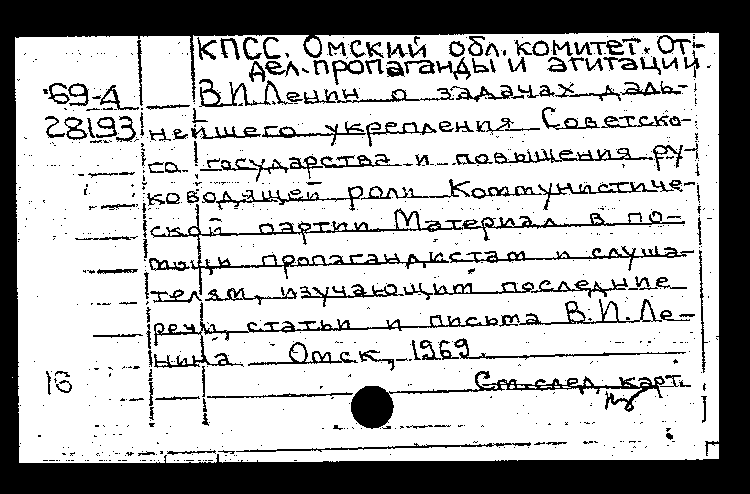 КПСС. Омский обл. комитет. От-
дел пропаганды и агитации.
69-4
В.И.Ленин о задачах даль-
28193
нейшего укрепления Советско-
го государства и повышения ру-
ководящей роли Коммунистиче-
ской партии. Материал в по-
мощь пропагандистам и слуша-
телям, изучающим последние
речи, статьи и письма В.И.Ле-
нина. Омск, 1969.
16
См. след. карт.